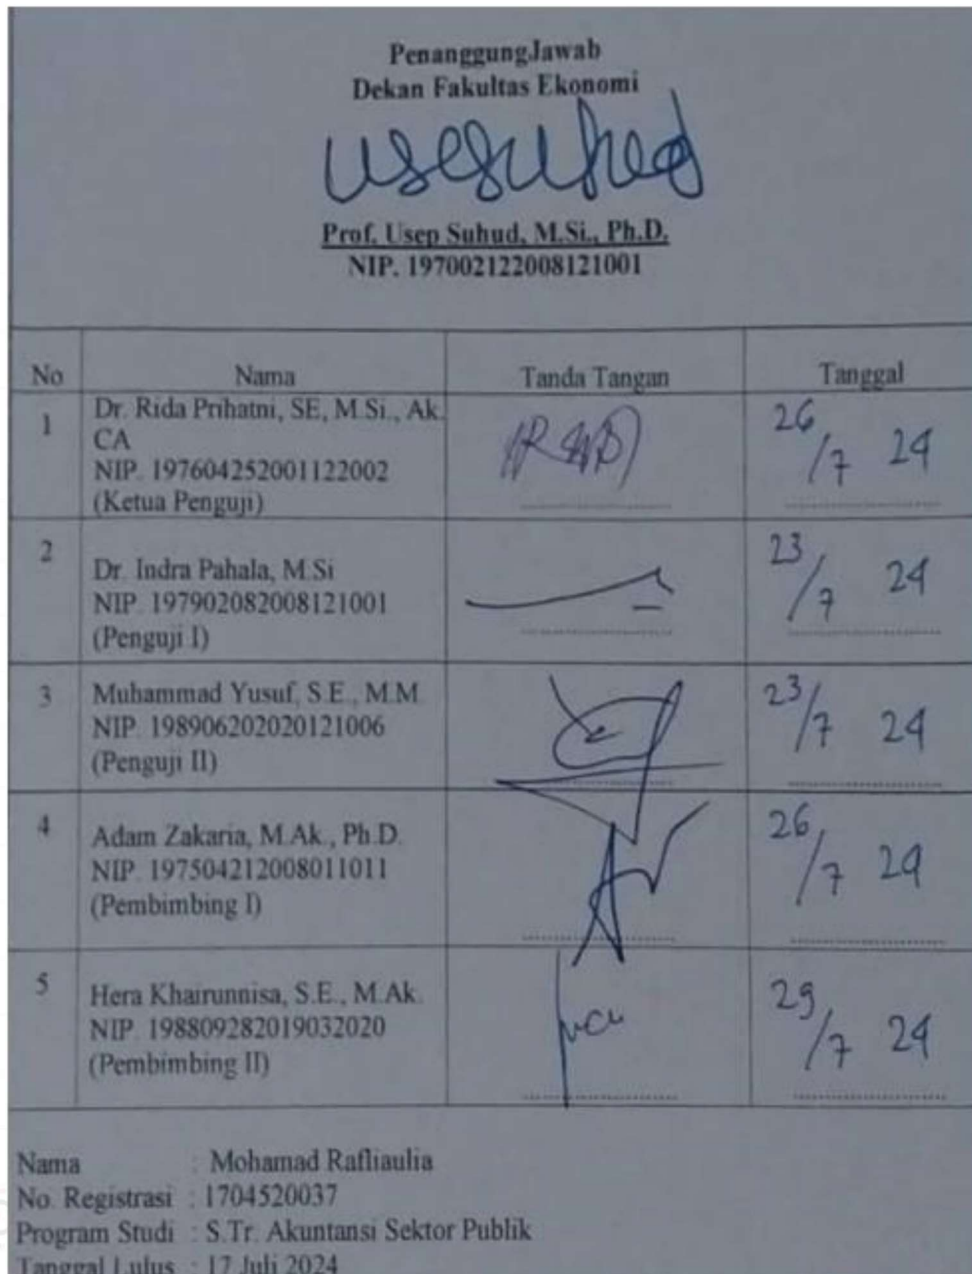 PenanggungJawab
Dekan Fakultas Ekonomi
Prof. Usep Suhud, M.Si., Ph.D.
NIP. 197002122008121001
No Nama Tanda Tangan Tanggal
1 Dr. Rida Prihatni, SE, M.Si., Ak.
CA
NIP. 197604252001122002
(Ketua Penguji)
26/7 24
2 Dr. Indra Pahala, M.Si
NIP. 197902082008121001
(Penguji I)
23/7 24
3 Muhammad Yusuf, S.E., M.M.
NIP. 198906202020121006
(Penguji II)
23/7 24
4 Adam Zakaria, M.Ak., Ph.D.
NIP. 197504212008011011
(Pembimbing I)
26/7 24
5 Hera Khairunnisa, S.E., M.Ak.
NIP. 198809282019032020
(Pembimbing II)
29/7 24
Nama : Mohamad Rafliaulia
No. Registrasi : 1704520037
Program Studi : S.Tr. Akuntansi Sektor Publik
Tanggal Lulus : 17 Juli 2024